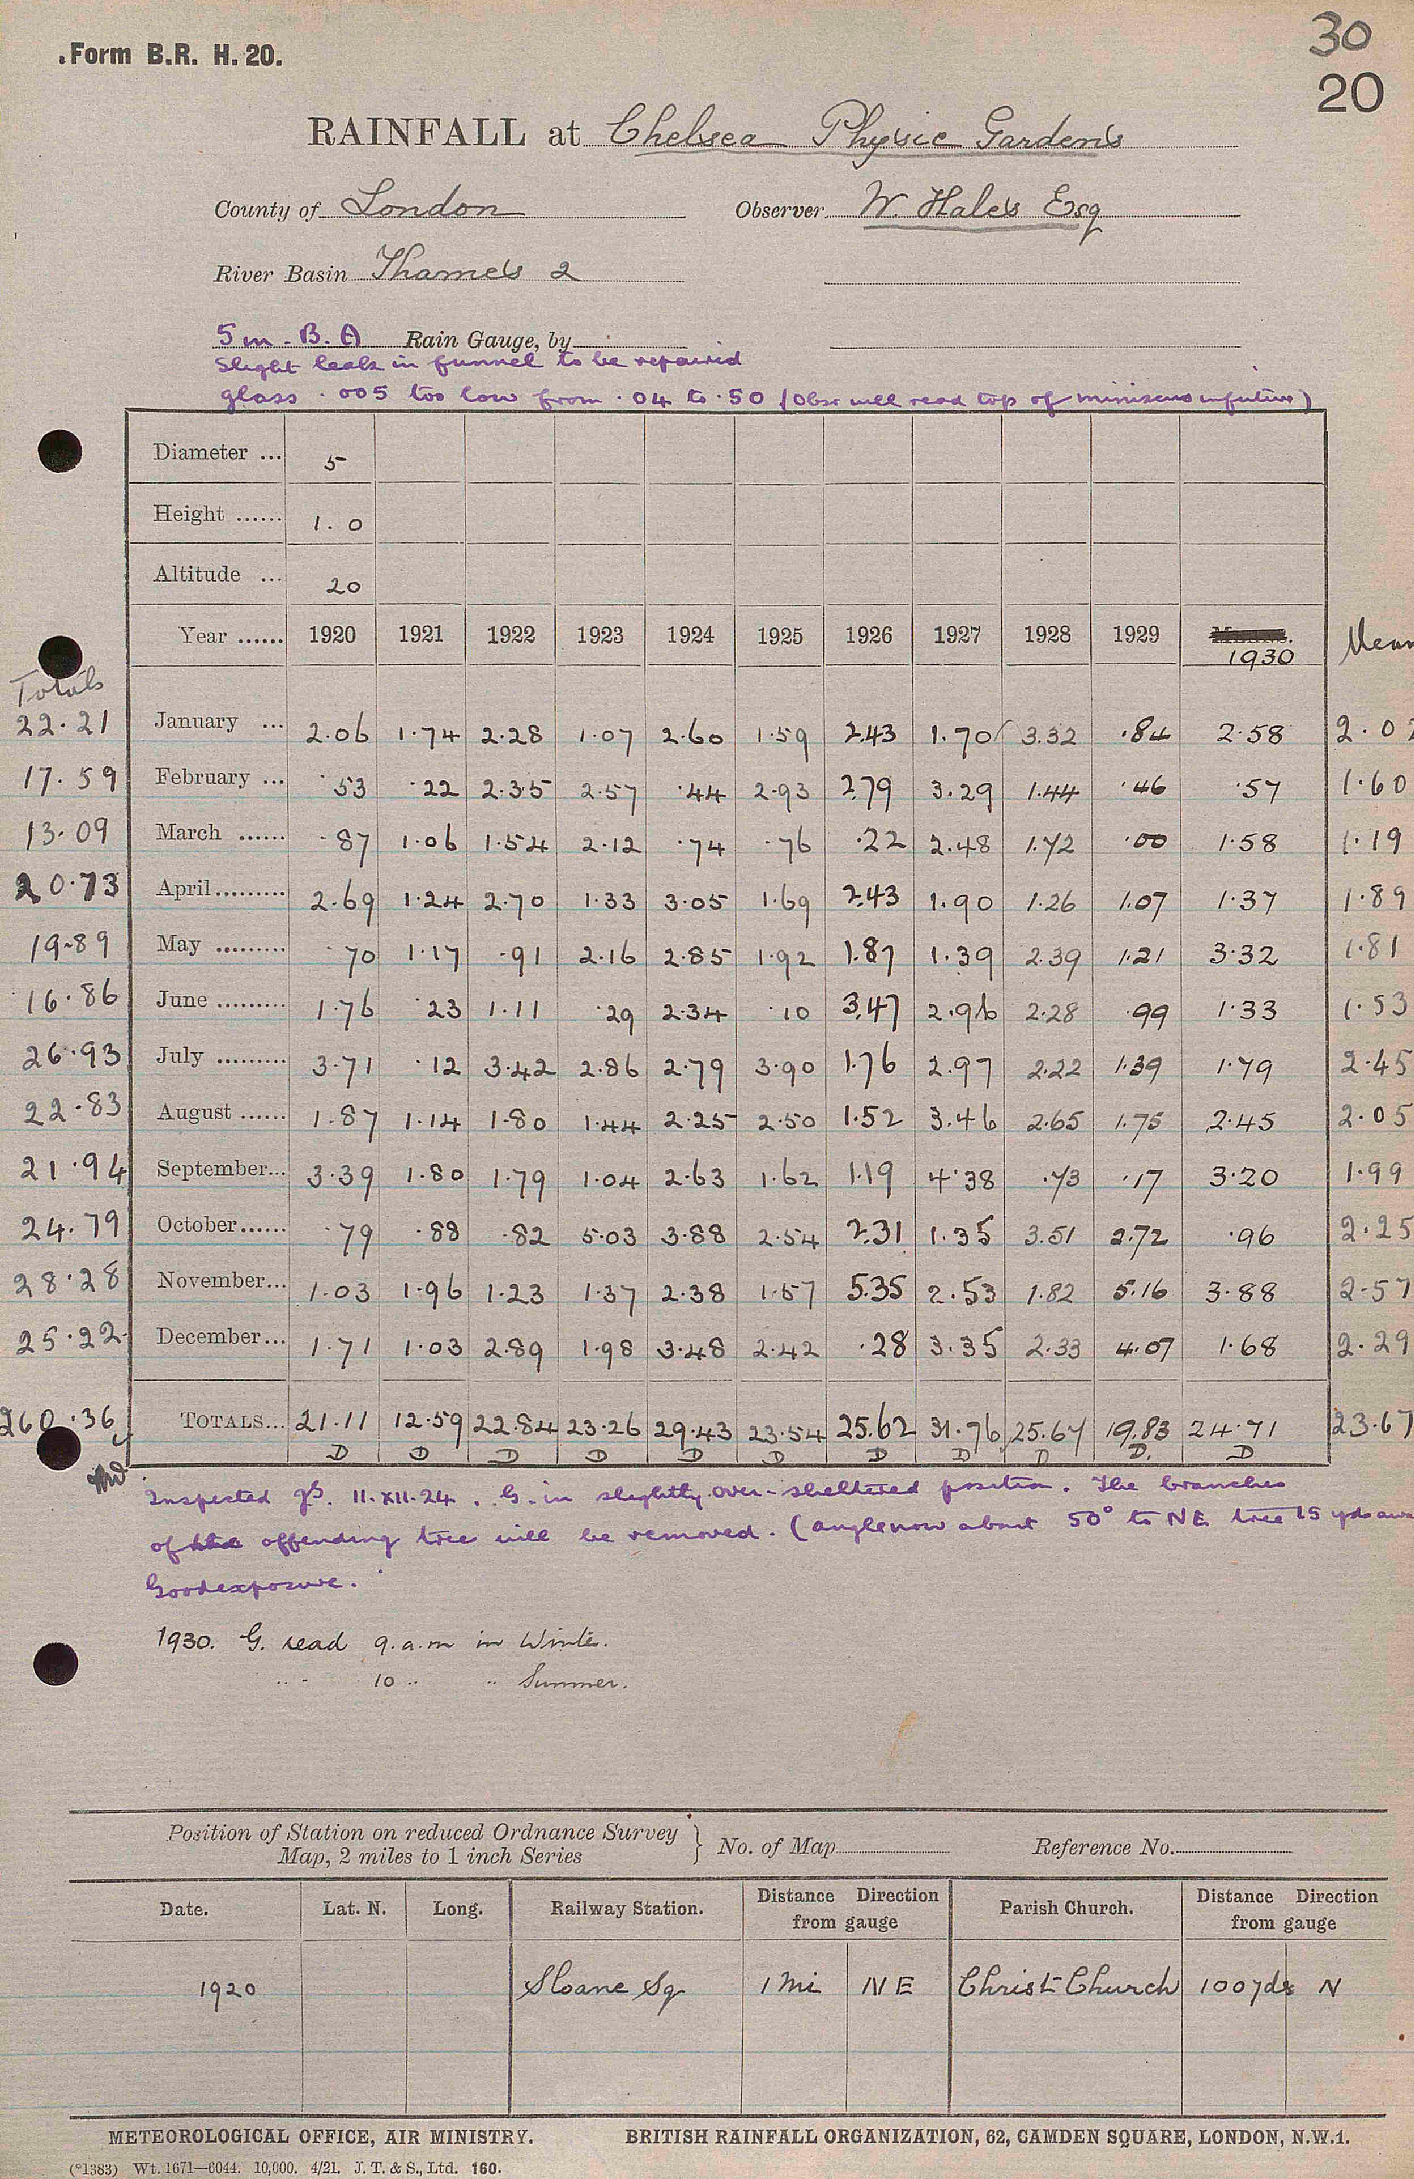 .Form B.R. H. 20.
30
20
RAINFALL at Chelsea Physic Gardens
County of London Observer W. Hales Esq
River Basin Thames 2
5 in - B. A Rain Gauge, by
Slight leak in funnel to be repaired
glass .005 too low from .04 to .50 (Obsr will read top of miniscus in future)
Diameter ... 5
Height ...... 1.0
Altitude ... 20
Year ...... 1920 1921 1922 1923 1924 1925 1926 1927 1928 1929 1930 Mean
Totals
22.21 January ... 2.06 1.74 2.28 1.07 2.60 1.59 2.43 1.70 3.32 .84 2.58 2.02
17.59 February ... .53 .22 2.35 2.57 .44 2.93 2.79 3.29 1.44 .46 .57 1.60
13.09 March ...... .87 1.06 1.54 2.12 .74 .76 .22 2.48 1.72 .00 1.58 1.19
20.73 April ......... 2.69 1.24 2.70 1.33 3.05 1.69 2.43 1.90 1.26 1.07 1.37 1.89
19.89 May ......... .70 1.17 .91 2.16 2.85 1.92 1.87 1.39 2.39 1.21 3.32 1.81
16.86 June ......... 1.76 .23 1.11 .29 2.34 .10 3.47 2.96 2.28 .99 1.33 1.53
26.93 July ......... 3.71 .12 3.42 2.86 2.79 3.90 1.76 2.97 2.22 1.39 1.79 2.45
22.83 August ...... 1.87 1.14 1.80 1.44 2.25 2.50 1.52 3.46 2.65 1.75 2.45 2.05
21.94 September... 3.39 1.80 1.79 1.04 2.63 1.62 1.19 4.38 .73 .17 3.20 1.99
24.79 October...... .79 .88 .82 5.03 3.88 2.54 2.31 1.35 3.51 2.72 .96 2.25
28.28 November... 1.03 1.96 1.23 1.37 2.38 1.57 5.35 2.53 1.82 5.16 3.88 2.57
25.22 December... 1.71 1.03 2.89 1.98 3.48 2.42 .28 3.35 2.33 4.07 1.68 2.29
260.36 TOTALS... 21.11 12.59 22.84 23.26 29.43 23.54 25.62 31.76 25.67 19.83 24.71 23.67
D D D D D D D D D D. D
Inspected 11.XII.24. G. in slightly over-sheltered position. The branches
of the offending tree will be removed. (angle now about 50° to NE tree 15 yds awa
Good exposure.
1930. G. read 9. a.m in Winter.
" - 10 " " Summer.
Position of Station on reduced Ordnance Survey
Map, 2 miles to 1 inch Series } No. of Map Reference No.
Date. Lat. N. Long. Railway Station. Distance Direction from gauge Parish Church. Distance Direction from gauge
1920 Sloane Sq 1 Mi NE Christ Church 100 yds N
METEOROLOGICAL OFFICE, AIR MINISTRY. BRITISH RAINFALL ORGANIZATION, 62, CAMDEN SQUARE, LONDON, N.W.1.
(*1383) Wt. 1671—6044. 10,000. 4/21. J. T. & S., Ltd. 160.